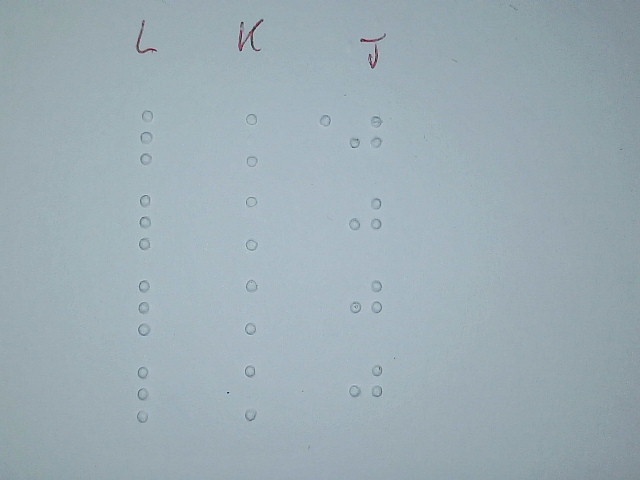 L K J
⠇ ⠅ ⠁⠚
⠇ ⠅ ⠚
⠇ ⠅ ⠚
⠇ ⠅ ⠚